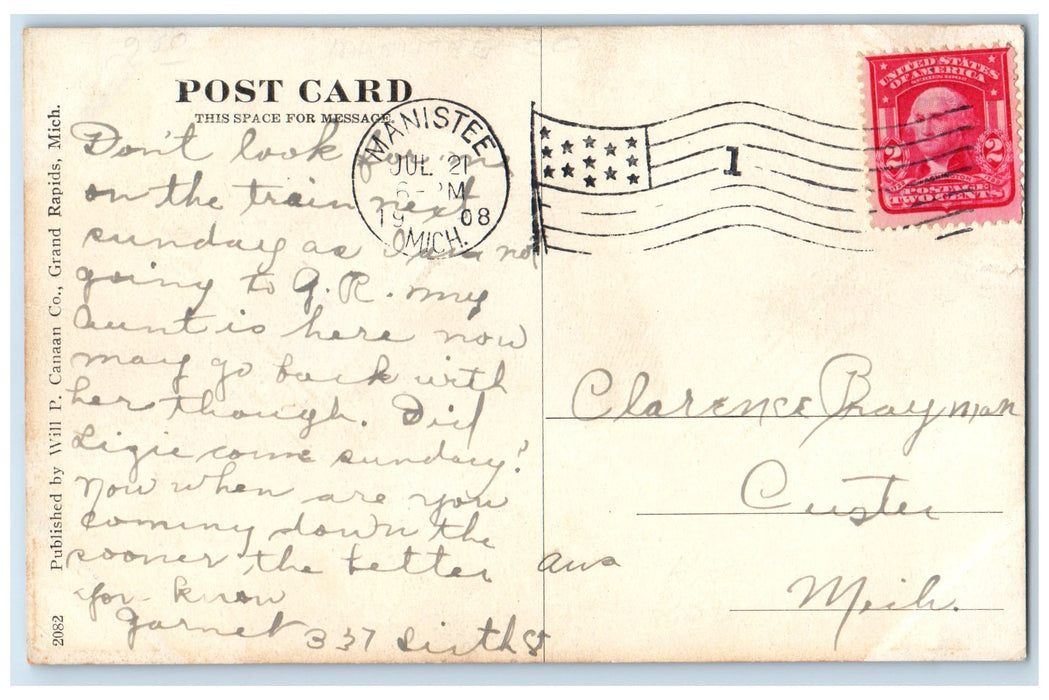 POST CARD
THIS SPACE FOR MESSAGE
Don't look for me
on the train next
sunday as I am not
going to G. R. my
Aunt is here now
may go back with
her though. Did
Lizie come sunday?
now when are you
coming down the
sooner the better
you know
Garnet 337 sixth St
ans
MANISTEE
JUL 21
6-PM
1908
MICH.
1
UNITED STATES
OF AMERICA
SERIES 1902
2 2
WASHINGTON
POSTAGE
TWO CENTS
Clarence Brayman
Custer
Mich.
Published by Will P. Canaan Co., Grand Rapids, Mich.
2082